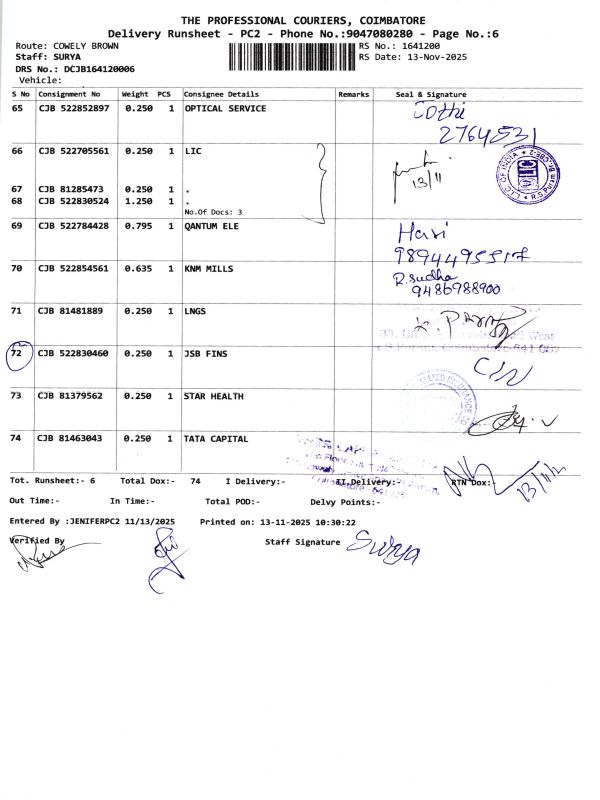 THE PROFESSIONAL COURIERS, COIMBATORE
Delivery Runsheet - PC2 - Phone No.:9047080280 - Page No.:6
Route: COWELY BROWN RS No.: 1641200
Staff: SURYA RS Date: 13-Nov-2025
DRS No.: DCJB164120006
Vehicle:
S No Consignment No Weight PCS Consignee Details Remarks Seal & Signature
65 CJB 522852897 0.250 1 OPTICAL SERVICE Jothi
2764531
66 CJB 522705561 0.250 1 LIC
13/11
67 CJB 81285473 0.250 1 .
68 CJB 522830524 1.250 1 .
No.Of Docs: 3
69 CJB 522784428 0.795 1 QANTUM ELE Hari
70 CJB 522854561 0.635 1 KNM MILLS R.Sudha
9486988900
71 CJB 81481889 0.250 1 LNGS
72 CJB 522830460 0.250 1 JSB FINS
73 CJB 81379562 0.250 1 STAR HEALTH
74 CJB 81463043 0.250 1 TATA CAPITAL
Tot. Runsheet:- 6 Total Dox:- 74 I Delivery:- II Delivery:- RTN Dox:-
13/11/2
Out Time:- In Time:- Total POD:- Delvy Points:-
Entered By :JENIFERPC2 11/13/2025 Printed on: 13-11-2025 10:30:22
Verified By Staff Signature Surya